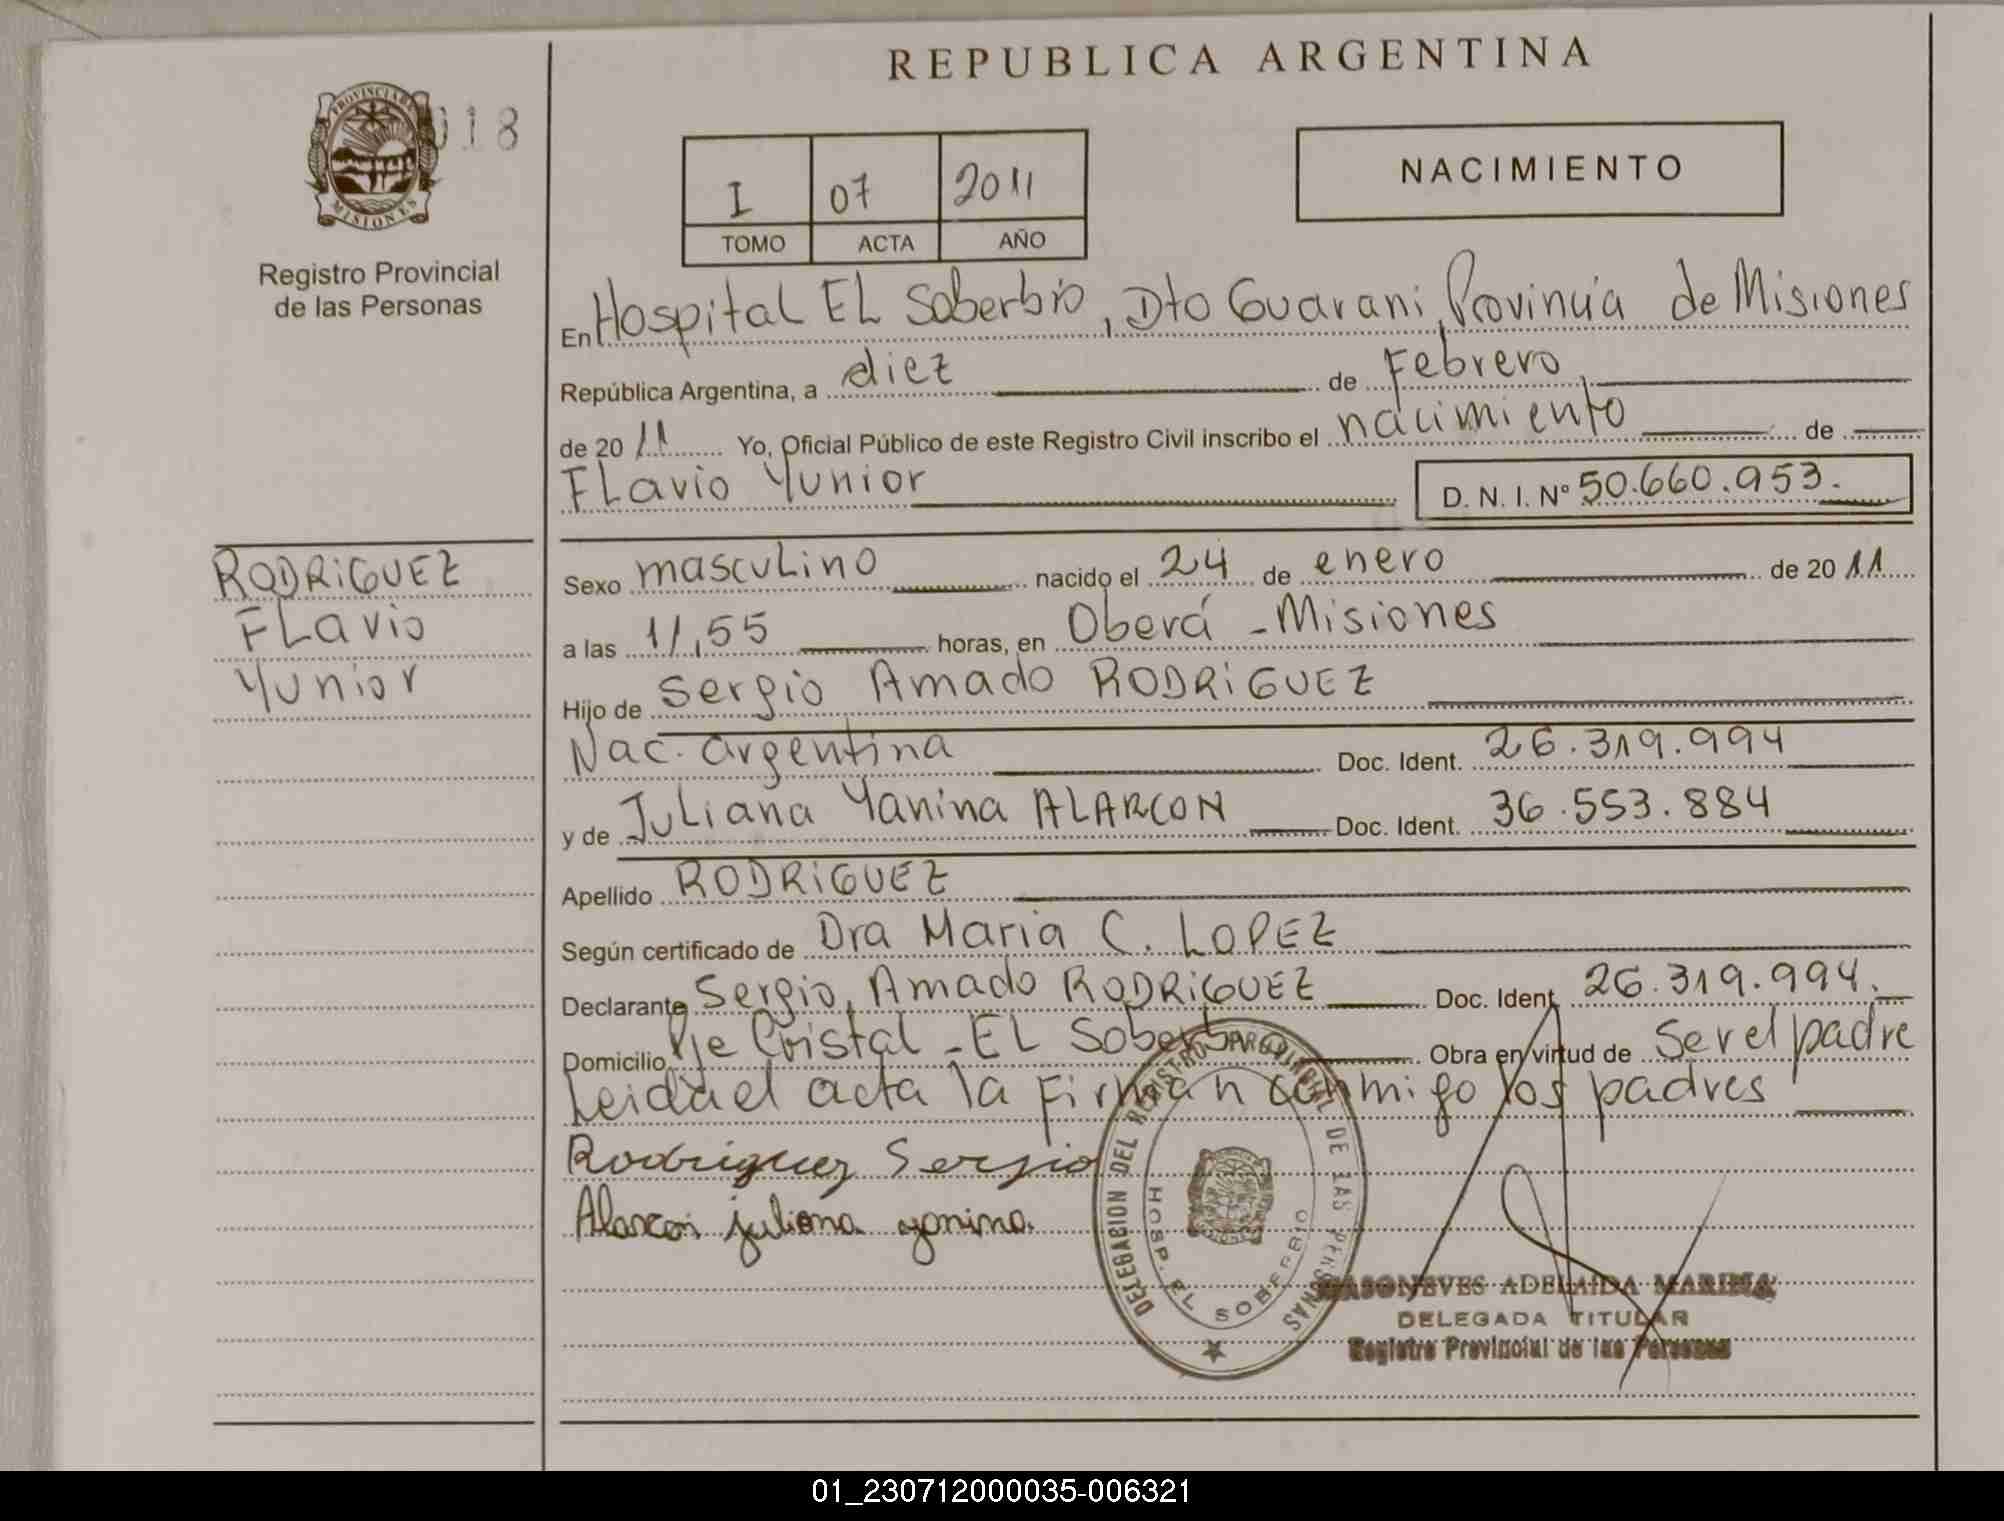 REPUBLICA ARGENTINA
PROVINCIA DE
MISIONES
018
Registro Provincial
de las Personas
I 07 2011
TOMO ACTA AÑO
NACIMIENTO
En Hospital EL Soberbio, Dto Guarani, Provincia de Misiones
República Argentina, a diez de Febrero
de 20 11 Yo, Oficial Público de este Registro Civil inscribo el nacimiento de
FLavio Yunior D. N. I. Nº 50.660.953.
RODRiGUEZ
FLavio
Yunior
Sexo mascuLino nacido el 24 de enero de 20 11
a las 11,55 horas, en Oberá - Misiones
Hijo de Sergio Amado RODRiGUEZ
Nac. argentina Doc. Ident. 26.319.994
y de JuLiana Yanina ALARCON Doc. Ident. 36.553.884
Apellido RODRiGUEZ
Según certificado de Dra Maria C. LOPEZ
Declarante Sergio Amado RODRiGUEZ Doc. Ident. 26.319.994.
Domicilio Pje Cristal - EL Soberbio Obra en virtud de Ser el padre
Leida el acta la Firman conmigo los padres
Rodriguez Sergio
Alarcon juliana yanina.
DELEGACION DEL REGISTRO PROVINCIAL DE LAS PERSONAS
HOSP. EL SOBERBIO
ADELAIDA MARINA
DELEGADA TITULAR
Registro Provincial de las Personas
01_230712000035-006321